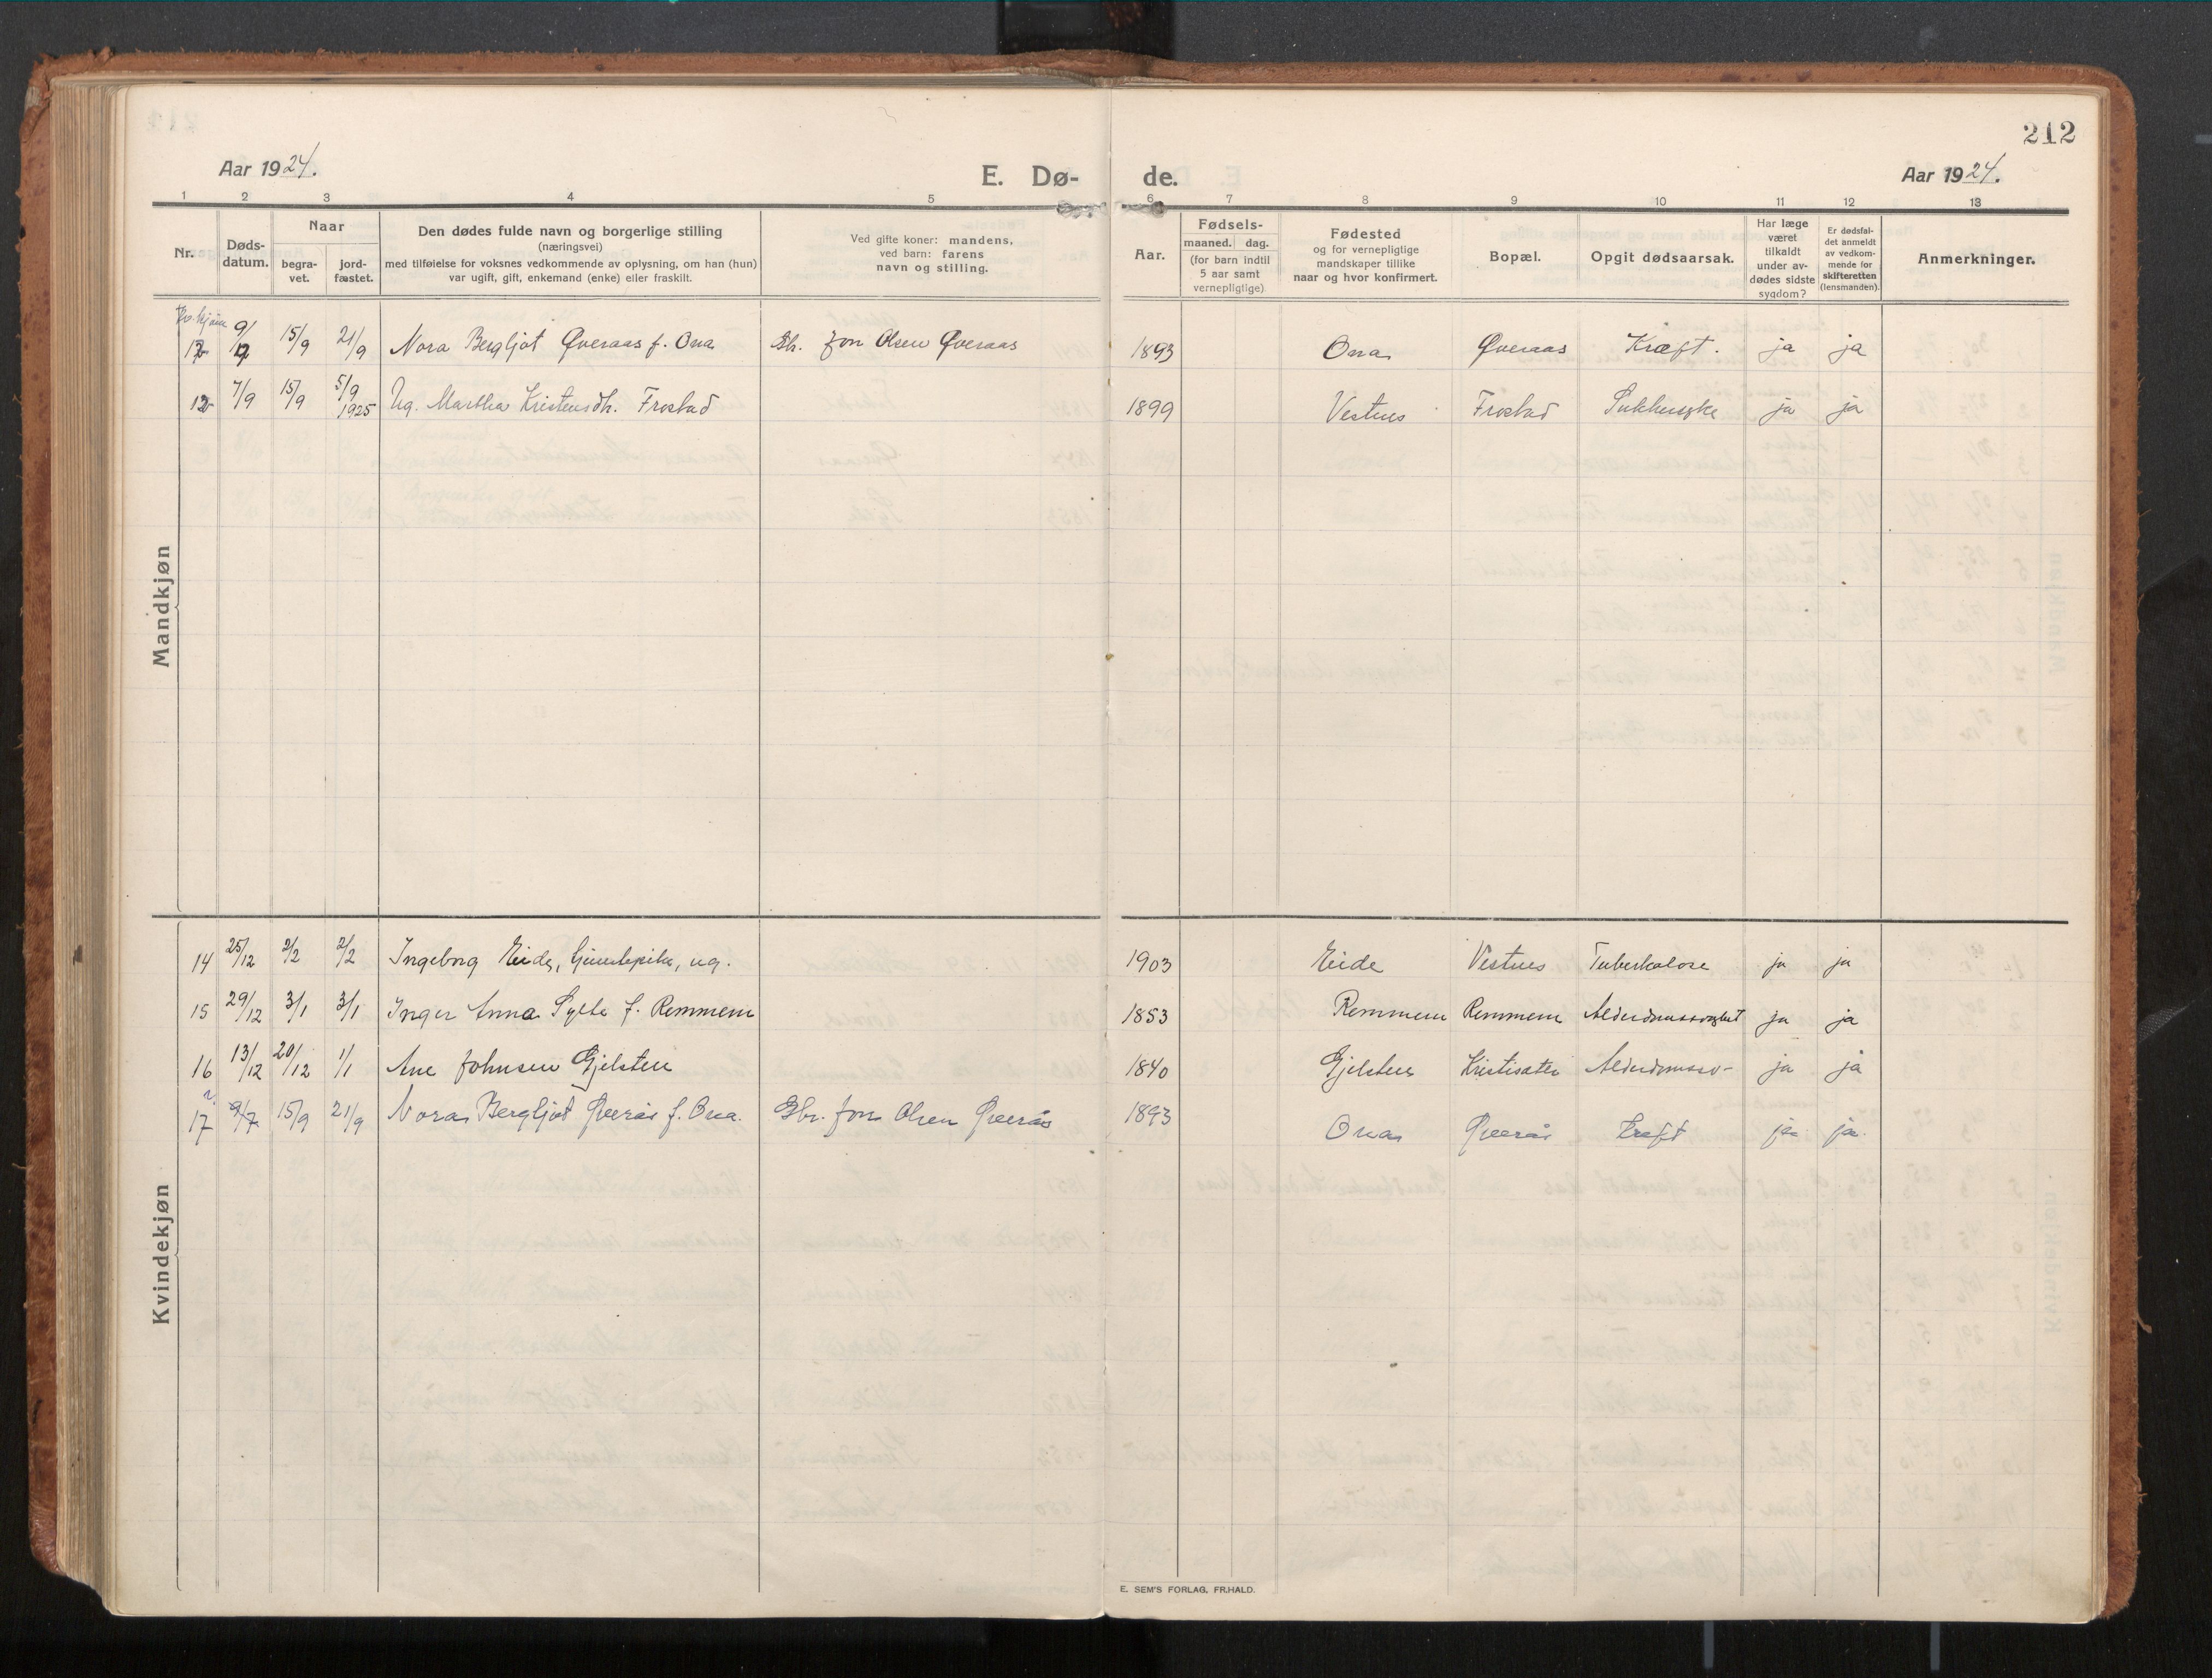 212
Aar 1924.
E. Dø-
de.
Aar 1924.
1 2 3 4 5 6 7 8 9 10 11 12 13
Nr.
Døds-
datum.
Naar
begra-
vet.
jord-
fæstet.
Den dødes fulde navn og borgerlige stilling
(næringsvei)
med tilføielse for voksnes vedkommende av oplysning, om han (hun)
var ugift, gift, enkemand (enke) eller fraskilt.
Ved gifte koner: mandens,
ved barn: farens
navn og stilling.
Aar.
Fødsels-
maaned. dag.
(for barn indtil
5 aar samt
vernepligtige)
Fødested
og for vernepligtige
mandskaper tillike
naar og hvor konfirmert.
Bopæl.
Opgit dødsaarsak.
Har læge
været
tilkaldt
under av-
dødes sidste
sygdom?
Er dødsfal-
det anmeldt
av vedkom-
mende for
skifteretten
(lensmanden).
Anmerkninger.
Mandkjøn
Kv.kjøn
9/ 15/9 21/9 Nora Bergljot Øveraas f. Ona Gbr. Jon Olsen Øveraas 1893 Ona Øveraas Kræft. ja ja
12 7/9 15/9 5/9 1925 Ug. Martha Kristensdtr. Frostad 1899 Vestnes Frostad Sukkersyke ja ja
Kvindekjøn
14 25/12 2/2 2/2 Ingeborg Eide, tjenestepike, ug. 1903 Eide Vestnes Tuberkulose ja ja
15 29/12 3/1 3/1 Inger Anna Sylte f. Remmem 1853 Remmem Remmem Alderdomssvaghet ja ja
16 13/12 20/12 1/1 Ane Johnsen Gjelsten 1840 Gjelsten Alderdomssv- ja ja
17 9/7 15/9 21/9 Nora Bergljot Øverås f. Ona. Gbr. Jon Olsen Øverås 1893 Ona Øverås kræft ja ja.
E. SEM'S FORLAG, FR.HALD.